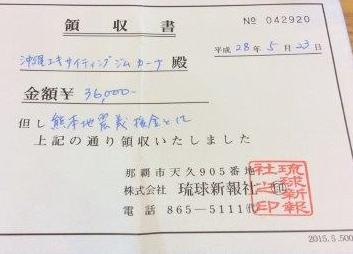 領収書
No 042920
平成 28年 5月 23日
沖縄エキサイティングジムカーナ 殿
金額¥ 36,000-
但し 熊本地震義援金として
上記の通り領収いたしました
那覇市天久905番地
株式会社 琉球新報社
電話 865-5111㈹
琉球新報社之印
2015.5.500